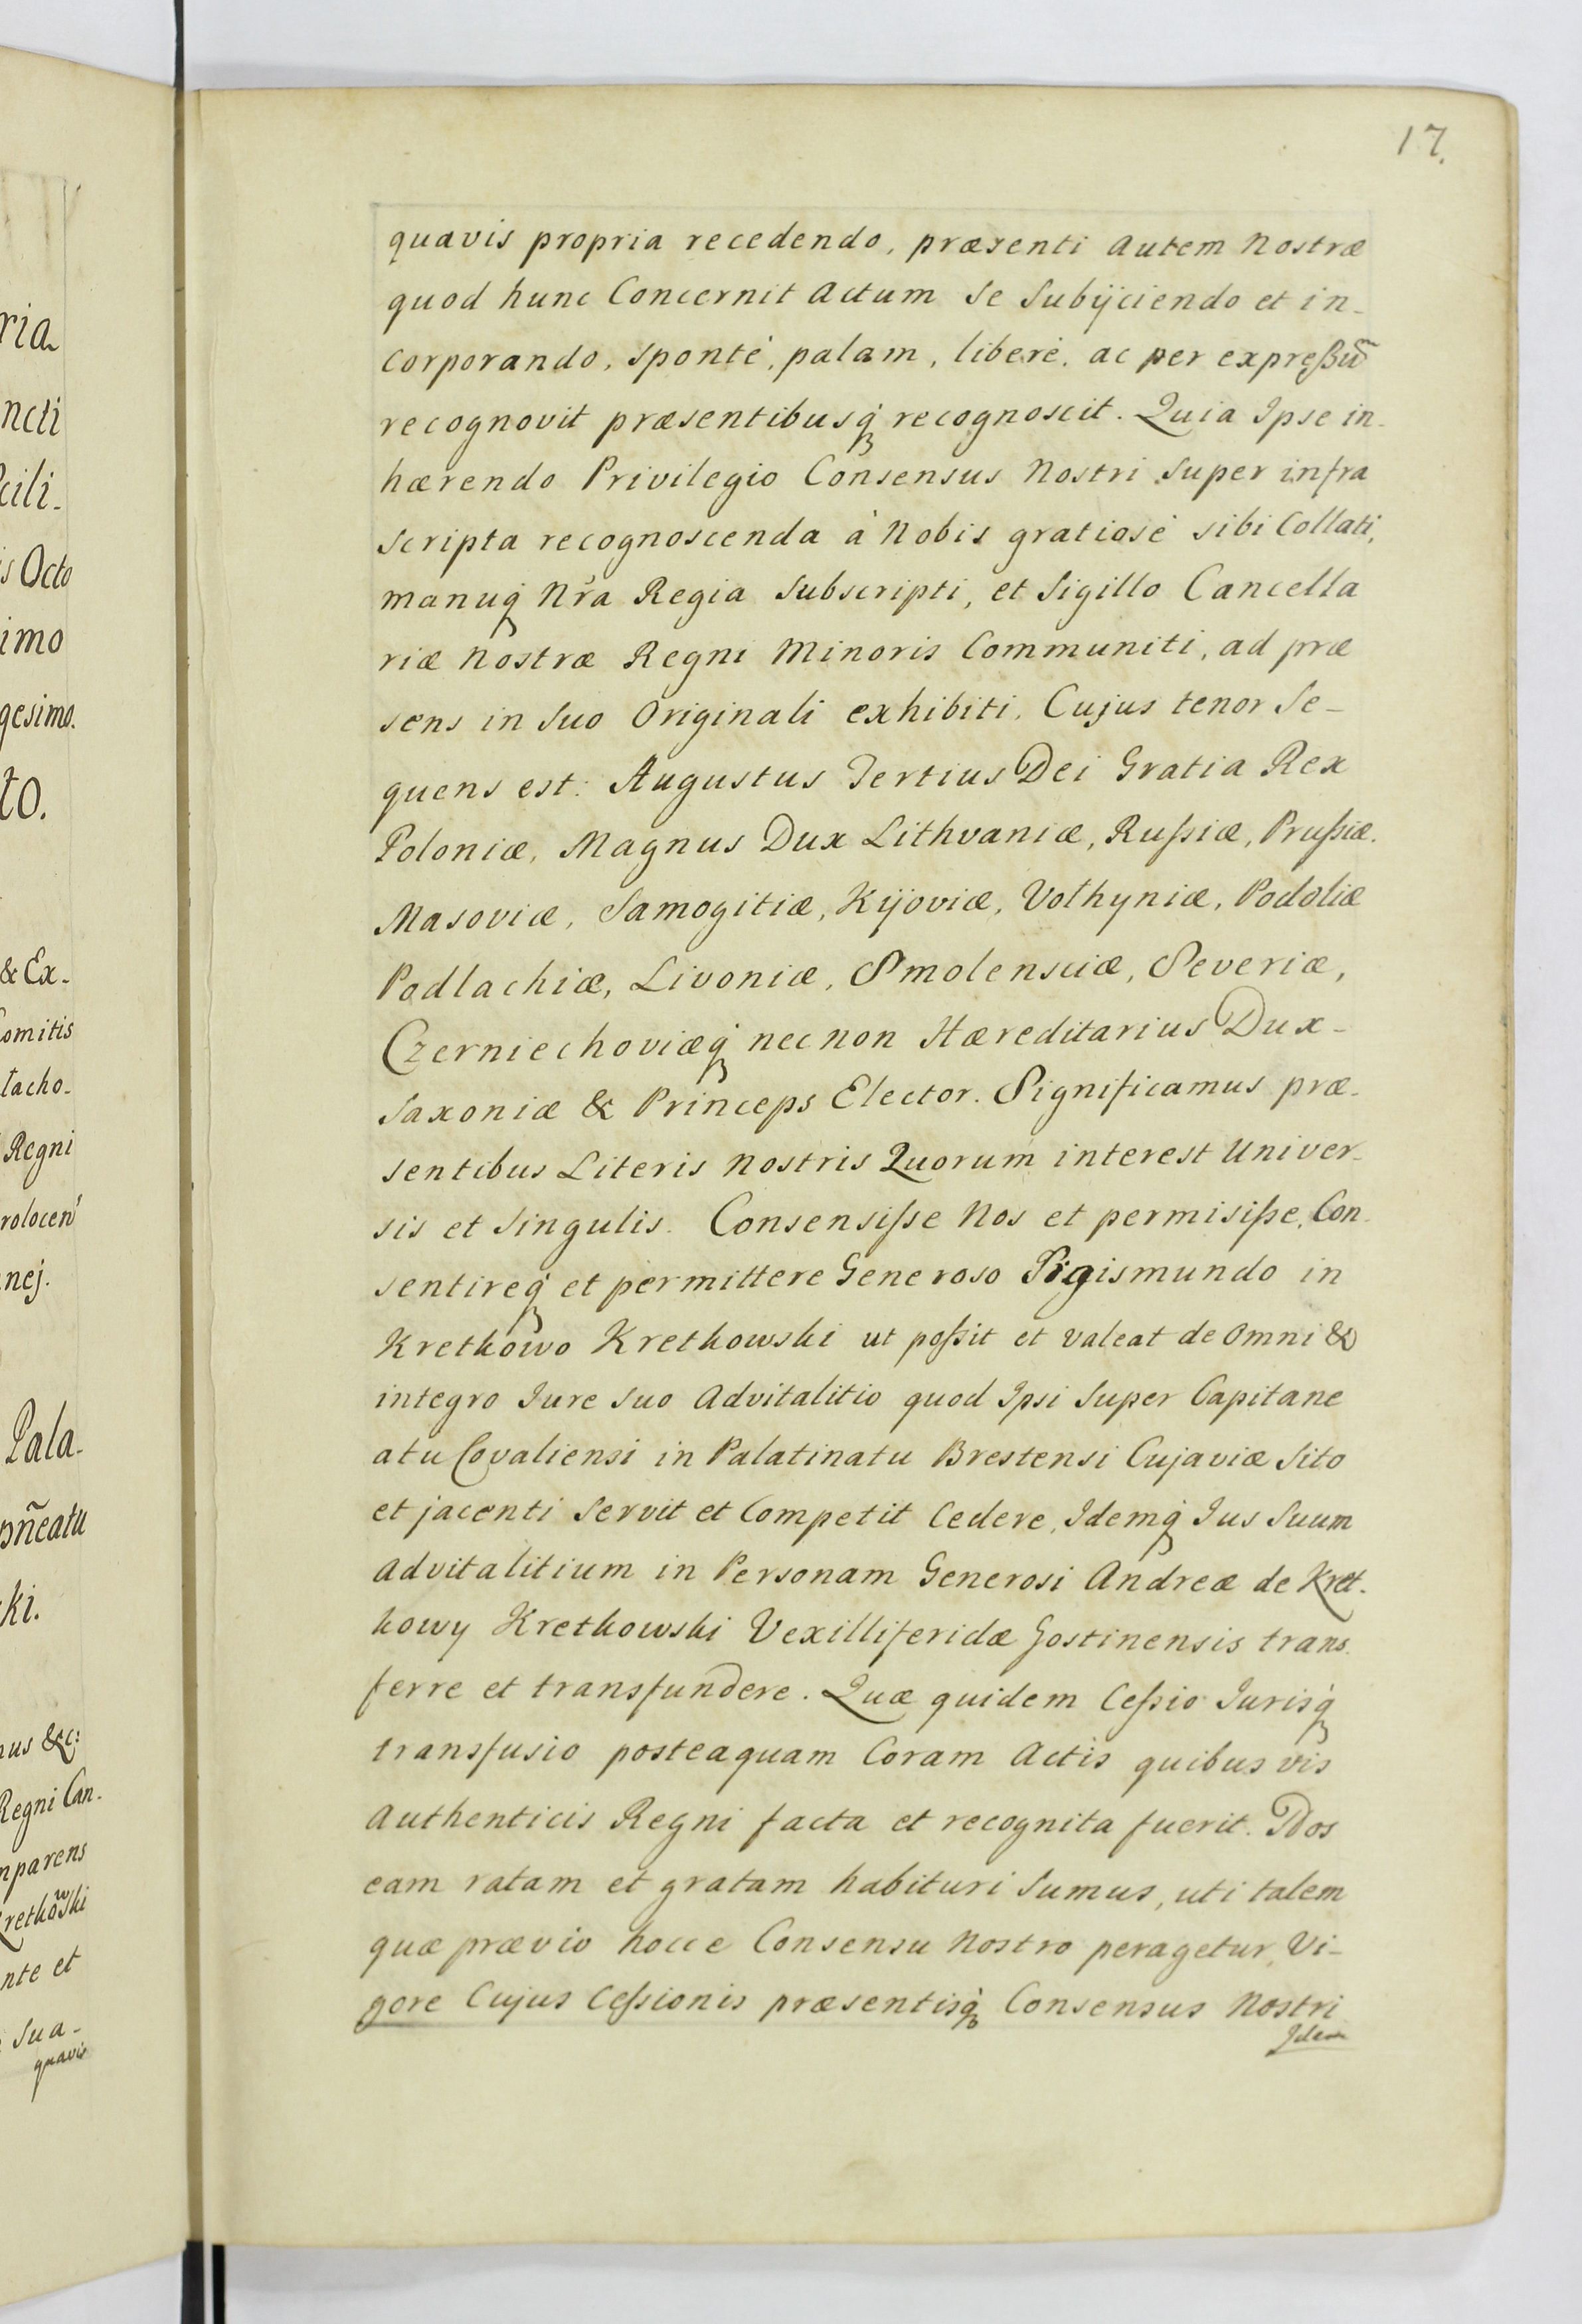 ria
ncti
cili-
is Octo
imo
gesimo.
to.
& Ex-
Comitis
tacho-
Regni
rolocen̄
nej.
Pala-
pñeatu
ki.
nus &c:
Regni Can-
mparens
Krethowski
nte et
Sua-
quavis
17.
quavis propria recedendo, præsenti autem Nostræ
quod hunc Concernit Actum se Subijciendo et in-
corporando, sponté, palam, liberé, ac per expreßū
recognovit præsentibusq́ recognoscit. Quia Ipse in-
hærendo Privilegio Consensus Nostri super infra
scripta recognoscenda à Nobis gratiosé sibi Collati,
manuq́ Nr̃a Regia Subscripti, et Sigillo Cancella
riæ Nostræ Regni Minoris Communiti, ad præ
sens in suo Originali exhibiti, Cujus tenor Se-
quens est: Augustus Tertius Dei Gratia Rex
Poloniæ, Magnus Dux Lithvaniæ, Rußiæ, Prußiæ.
Masoviæ, Samogitiæ, Kijoviæ, Volhyniæ, Podoliæ
Podlachiæ, Livoniæ, Smolensciæ, Severiæ,
Czerniechoviæq́ nec non Hæreditarius Dux-
Saxoniæ & Princeps Elector. Significamus præ-
sentibus Literis Nostris Quorum interest Univer-
sis et Singulis. Consensiße Nos et permisiße, Con-
sentireq́ et permittere Generoso Sigismundo in
Krethowo Krethowski ut poßit et valeat de Omni &
integro Jure suo Advitalitio quod Ipsi super Capitane
atu Covaliensi in Palatinatu Brestensi Cujaviæ Sito
et jacenti Servit et Competit Cedere, Idemq́ Jus Suum
Advitalitium in Personam Generosi Andreæ de Kret-
howy Krethowski Vexilliferidæ Gostinensis trans-
ferre et transfundere. Quæ quidem Ceßio Jurisq́
transfusio posteaquam Coram Actis quibusvis
Authenticis Regni facta et recognita fuerit. Nos
eam ratam et gratam habituri Sumus, uti talem
quæ prævio hocce Consensu Nostro peragetur, Vi-
gore Cujus Ceßionis præsentisq́ Consensus Nostri
Idem